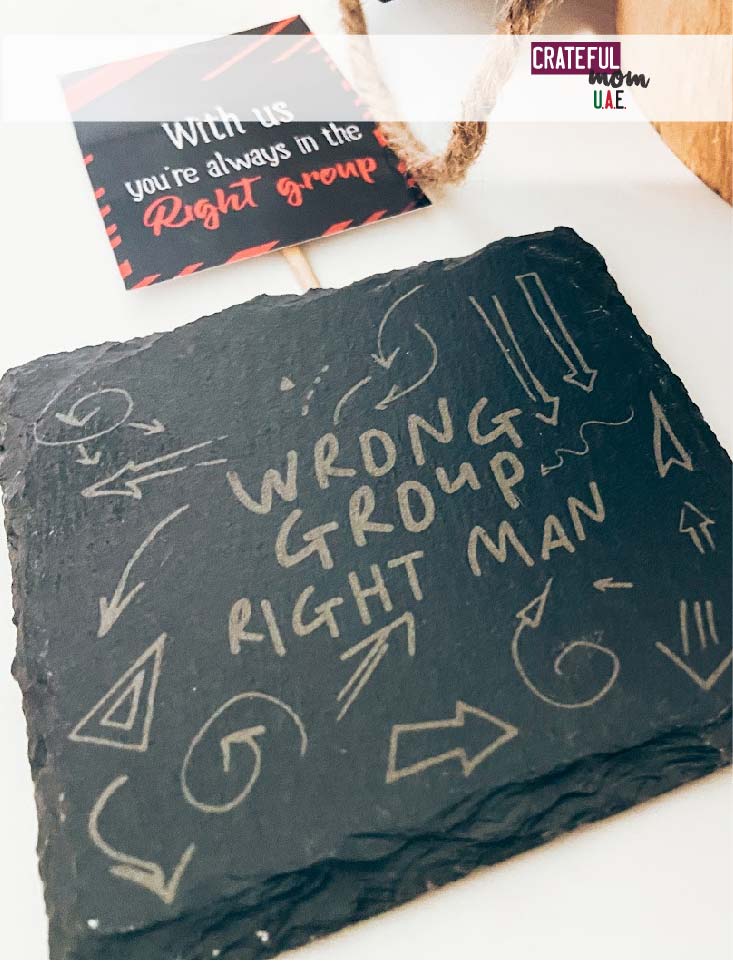 CRATEFUL
mom
U.A.E.
With us
you're always in the
Right group
WRONG
GROUP
RIGHT MAN